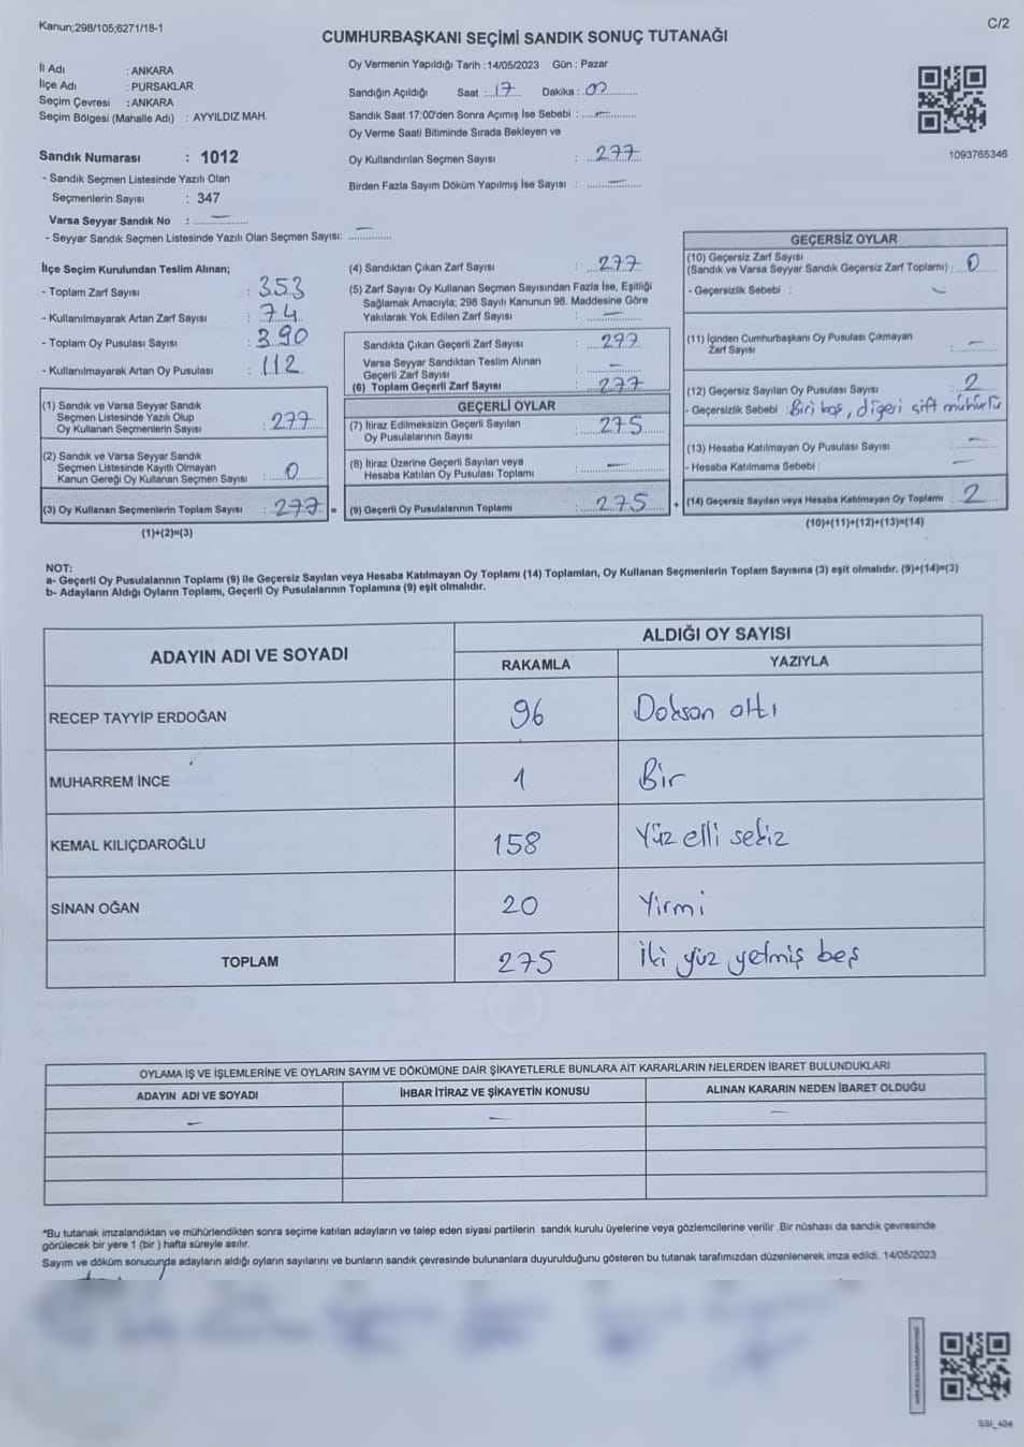 Kanun;298/105;6271/18-1
C/2
CUMHURBAŞKANI SEÇİMİ SANDIK SONUÇ TUTANAĞI
İl Adı : ANKARA
İlçe Adı : PURSAKLAR
Seçim Çevresi : ANKARA
Seçim Bölgesi (Mahalle Adı) : AYYILDIZ MAH.
Oy Vermenin Yapıldığı Tarih : 14/05/2023 Gün : Pazar
Sandığın Açıldığı Saat : 17 Dakika : 00
Sandık Saat 17:00'den Sonra Açımış İse Sebebi : —
Oy Verme Saati Bitiminde Sırada Bekleyen ve
Oy Kullandırılan Seçmen Sayısı : 277
Birden Fazla Sayım Döküm Yapılmış İse Sayısı : —
1093765346
Sandık Numarası : 1012
- Sandık Seçmen Listesinde Yazılı Olan
Seçmenlerin Sayısı : 347
Varsa Seyyar Sandık No : —
- Seyyar Sandık Seçmen Listesinde Yazılı Olan Seçmen Sayısı: —
İlçe Seçim Kurulundan Teslim Alınan;
- Toplam Zarf Sayısı : 353
- Kullanılmayarak Artan Zarf Sayısı : 74
- Toplam Oy Pusulası Sayısı : 390
- Kullanılmayarak Artan Oy Pusulası : 112
(1) Sandık ve Varsa Seyyar Sandık
Seçmen Listesinde Yazılı Olup
Oy Kullanan Seçmenlerin Sayısı : 277
(2) Sandık ve Varsa Seyyar Sandık
Seçmen Listesinde Kayıtlı Olmayan
Kanun Gereği Oy Kullanan Seçmen Sayısı : 0
(3) Oy Kullanan Seçmenlerin Toplam Sayısı : 277 =
(1)+(2)=(3)
(4) Sandıktan Çıkan Zarf Sayısı : 277
(5) Zarf Sayısı Oy Kullanan Seçmen Sayısından Fazla İse, Eşitliği
Sağlamak Amacıyla; 298 Sayılı Kanunun 98. Maddesine Göre
Yakılarak Yok Edilen Zarf Sayısı : —
Sandıkta Çıkan Geçerli Zarf Sayısı : 277
Varsa Seyyar Sandıktan Teslim Alınan
Geçerli Zarf Sayısı : —
(6) Toplam Geçerli Zarf Sayısı : 277
GEÇERLİ OYLAR
(7) İtiraz Edilmeksizin Geçerli Sayılan
Oy Pusulalarının Sayısı : 275
(8) İtiraz Üzerine Geçerli Sayılan veya
Hesaba Katılan Oy Pusulası Toplamı : —
(9) Geçerli Oy Pusulalarının Toplamı : 275 +
GEÇERSİZ OYLAR
(10) Geçersiz Zarf Sayısı
(Sandık ve Varsa Seyyar Sandık Geçersiz Zarf Toplamı) : 0
- Geçersizlik Sebebi : —
(11) İçinden Cumhurbaşkanı Oy Pusulası Çıkmayan
Zarf Sayısı : —
(12) Geçersiz Sayılan Oy Pusulası Sayısı : 2
- Geçersizlik Sebebi : Biri boş, diğeri çift mühürlü
(13) Hesaba Katılmayan Oy Pusulası Sayısı : —
- Hesaba Katılmama Sebebi : —
(14) Geçersiz Sayılan veya Hesaba Katılmayan Oy Toplamı : 2
(10)+(11)+(12)+(13)=(14)
NOT:
a- Geçerli Oy Pusulalarının Toplamı (9) ile Geçersiz Sayılan veya Hesaba Katılmayan Oy Toplamı (14) Toplamları, Oy Kullanan Seçmenlerin Toplam Sayısına (3) eşit olmalıdır. (9)+(14)=(3)
b- Adayların Aldığı Oyların Toplamı, Geçerli Oy Pusulalarının Toplamına (9) eşit olmalıdır.
ADAYIN ADI VE SOYADI
ALDIĞI OY SAYISI
RAKAMLA YAZIYLA
RECEP TAYYİP ERDOĞAN 96 Doksan altı
MUHARREM İNCE 1 Bir
KEMAL KILIÇDAROĞLU 158 Yüz elli sekiz
SİNAN OĞAN 20 Yirmi
TOPLAM 275 İki yüz yetmiş beş
OYLAMA İŞ VE İŞLEMLERİNE VE OYLARIN SAYIM VE DÖKÜMÜNE DAİR ŞİKAYETLERLE BUNLARA AİT KARARLARIN NELERDEN İBARET BULUNDUKLARI
ADAYIN ADI VE SOYADI İHBAR İTİRAZ VE ŞİKAYETİN KONUSU ALINAN KARARIN NEDEN İBARET OLDUĞU
— — —
*Bu tutanak imzalandıktan ve mühürlendikten sonra seçime katılan adayların ve talep eden siyasi partilerin sandık kurulu üyelerine veya gözlemcilerine verilir .Bir nüshası da sandık çevresinde
görülecek bir yere 1 (bir ) hafta süreyle asılır.
Sayım ve döküm sonucunda adayların aldığı oyların sayılarını ve bunların sandık çevresinde bulunanlara duyurulduğunu gösteren bu tutanak tarafımızdan düzenlenerek imza edildi. 14/05/2023